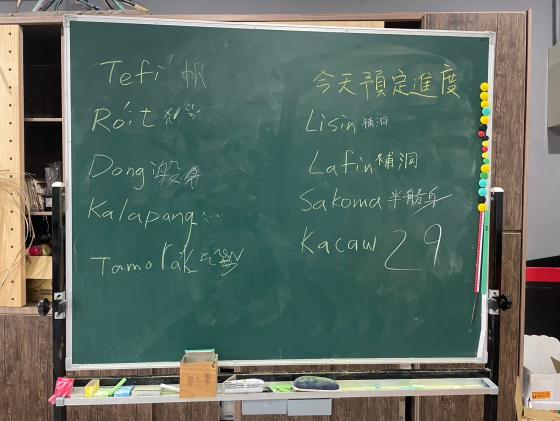 Tefi 帆
Roit
Dong
Kalapang
Tamorak
今天預定進度
Lisin 補洞
Lafin 補洞
Sakoma 半船身
Kacaw 29